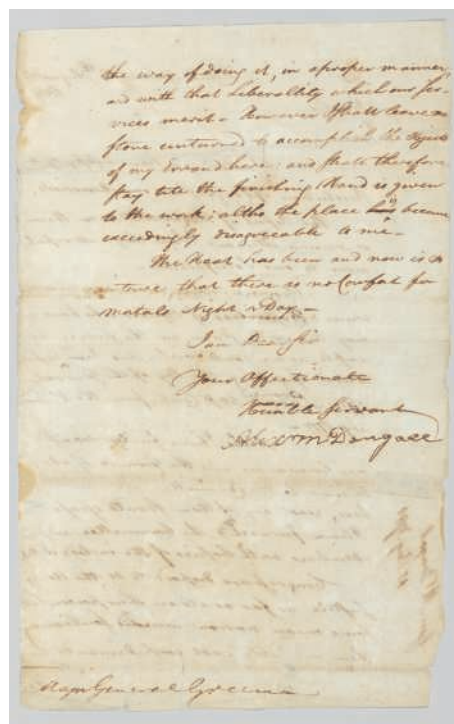 the way of doing it, in a proper manner,
and with that Liberality which our ser-
vices merit. However I shall leave no
stone unturned to accomplish the object
of my Errand here: and shall therefore
stay till the finishing Hand is given
to the work; altho the place has become
exceedingly disagreeable to me.
The Heat has been and now is so
intense, that there is no Comfort for
Matals Night & Day.
I am Dear Sir
Your Affectionate
Humble Servant
Alexr McDougall
Major General Greene